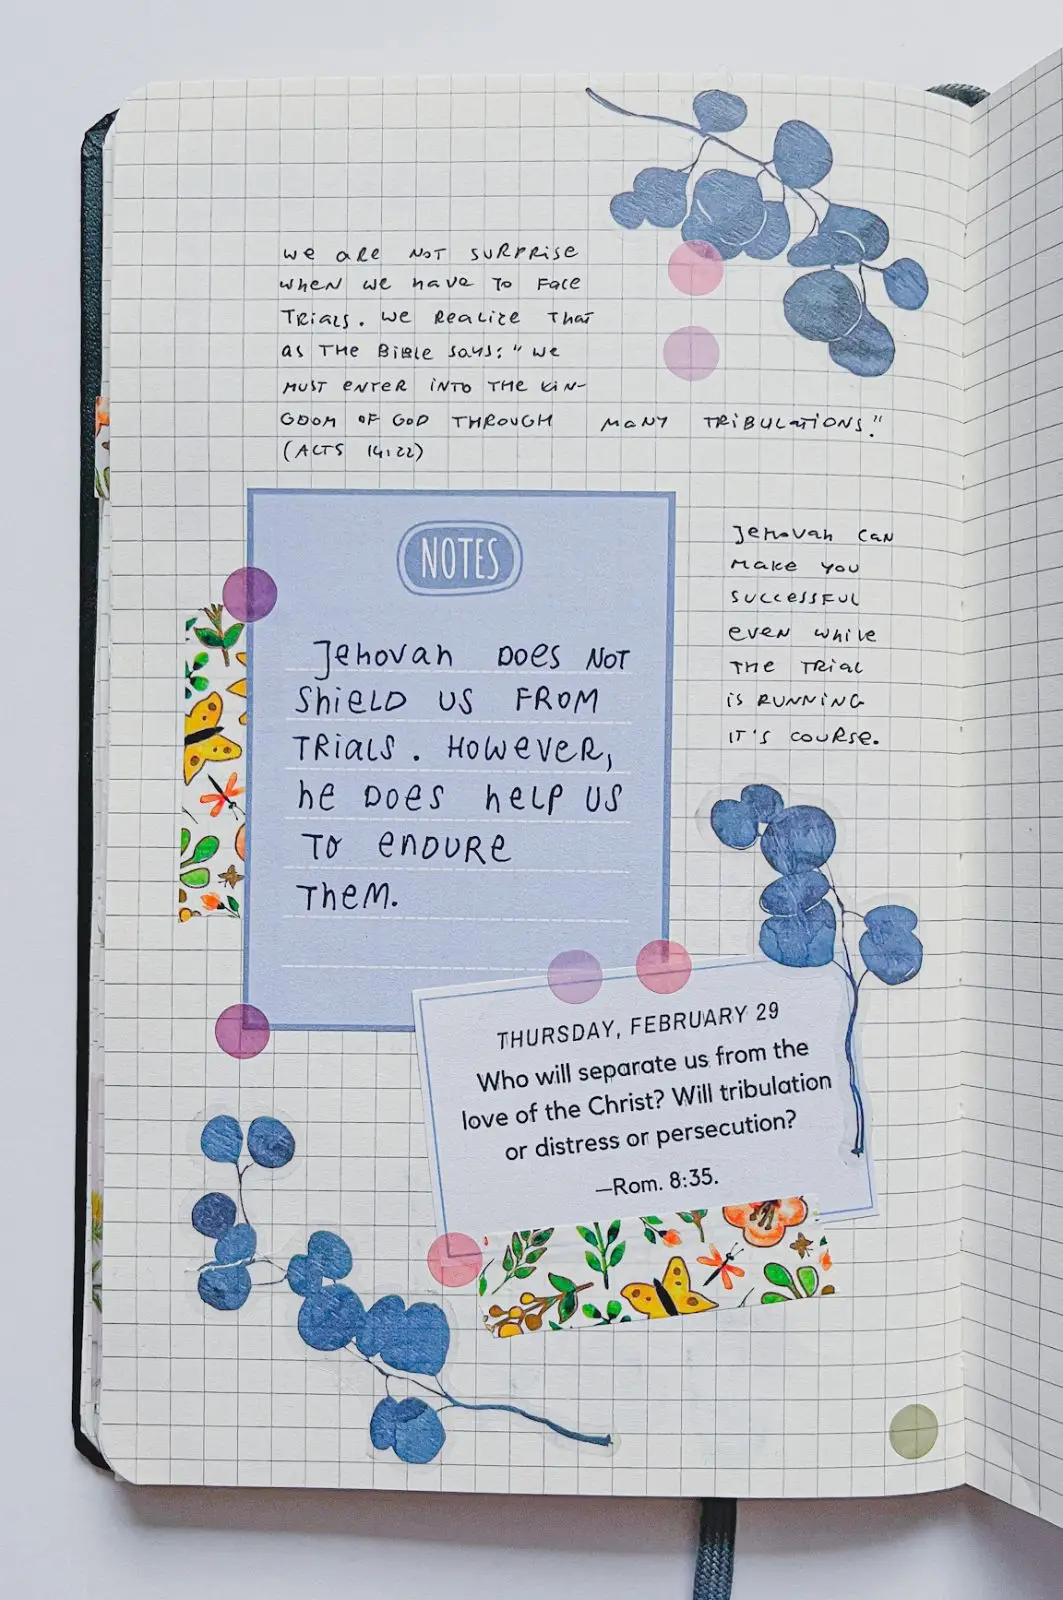 We are not surprise
when we have to face
trials. We realize that
as the Bible says: "We
must enter into the kin-
gdom of God through many tribulations."
(Acts 14:22)
NOTES
Jehovah does not
shield us from
trials. However,
he does help us
to endure
them.
Jehovah can
make you
successful
even while
the trial
is running
it's course.
THURSDAY, FEBRUARY 29
Who will separate us from the
love of the Christ? Will tribulation
or distress or persecution?
—Rom. 8:35.